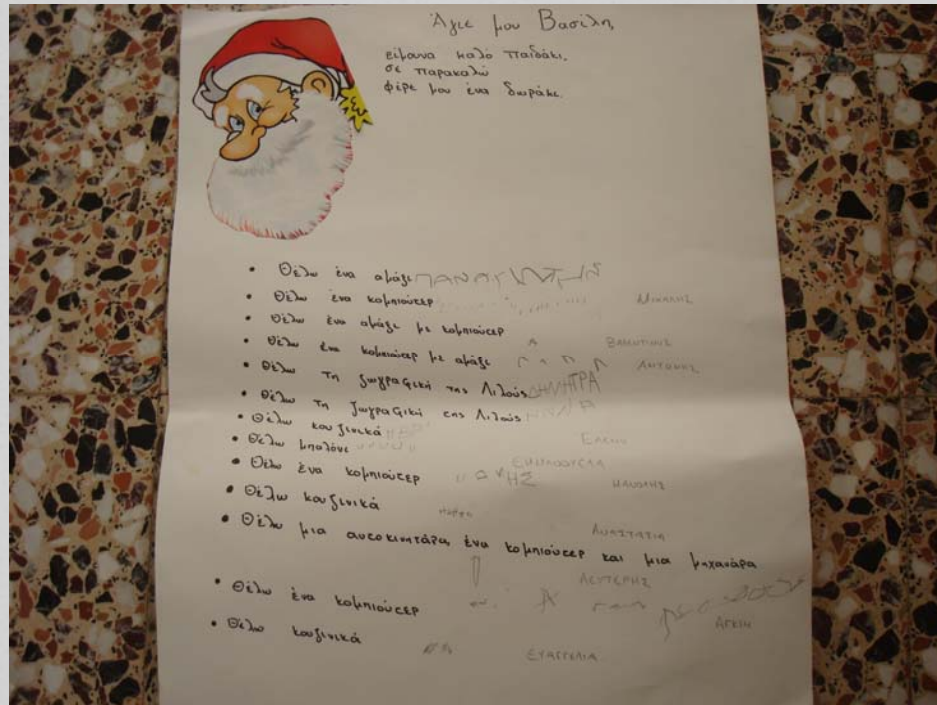 Άγιε μου Βασίλη,
είμουνα καλό παιδάκι,
σε παρακαλώ
φέρε μου ένα δωράκι.
• Θέλω ένα αμάξι ΠΑΝΑΓΙΩΤΗΣ
• Θέλω ένα κομπιούτερ ΜΙΧΑΛΗΣ
• Θέλω ένα αμάξι με κομπιούτερ
• Θέλω ένα κομπιούτερ με αμάξι ΑΝΤΩΝΗΣ
• Θέλω τη ζωγραφική της Λιλούς ΔΗΜΗΤΡΑ
• Θέλω τη ζωγραφική της Λιλούς
• Θέλω κουζινικά ΕΛΕΝΗ
• Θέλω μπαλόνι ΕΜΜΑΝΟΥΕΛΑ
• Θέλω ένα κομπιούτερ ΜΑΝΩΛΗΣ
• Θέλω κουζινικά ΑΝΑΣΤΑΣΙΑ
• Θέλω μια αυτοκινητάρα, ένα κομπιούτερ και μια μηχανάρα
ΛΕΥΤΕΡΗΣ
• Θέλω ένα κομπιούτερ
• Θέλω κουζινικά ΕΥΑΓΓΕΛΙΑ